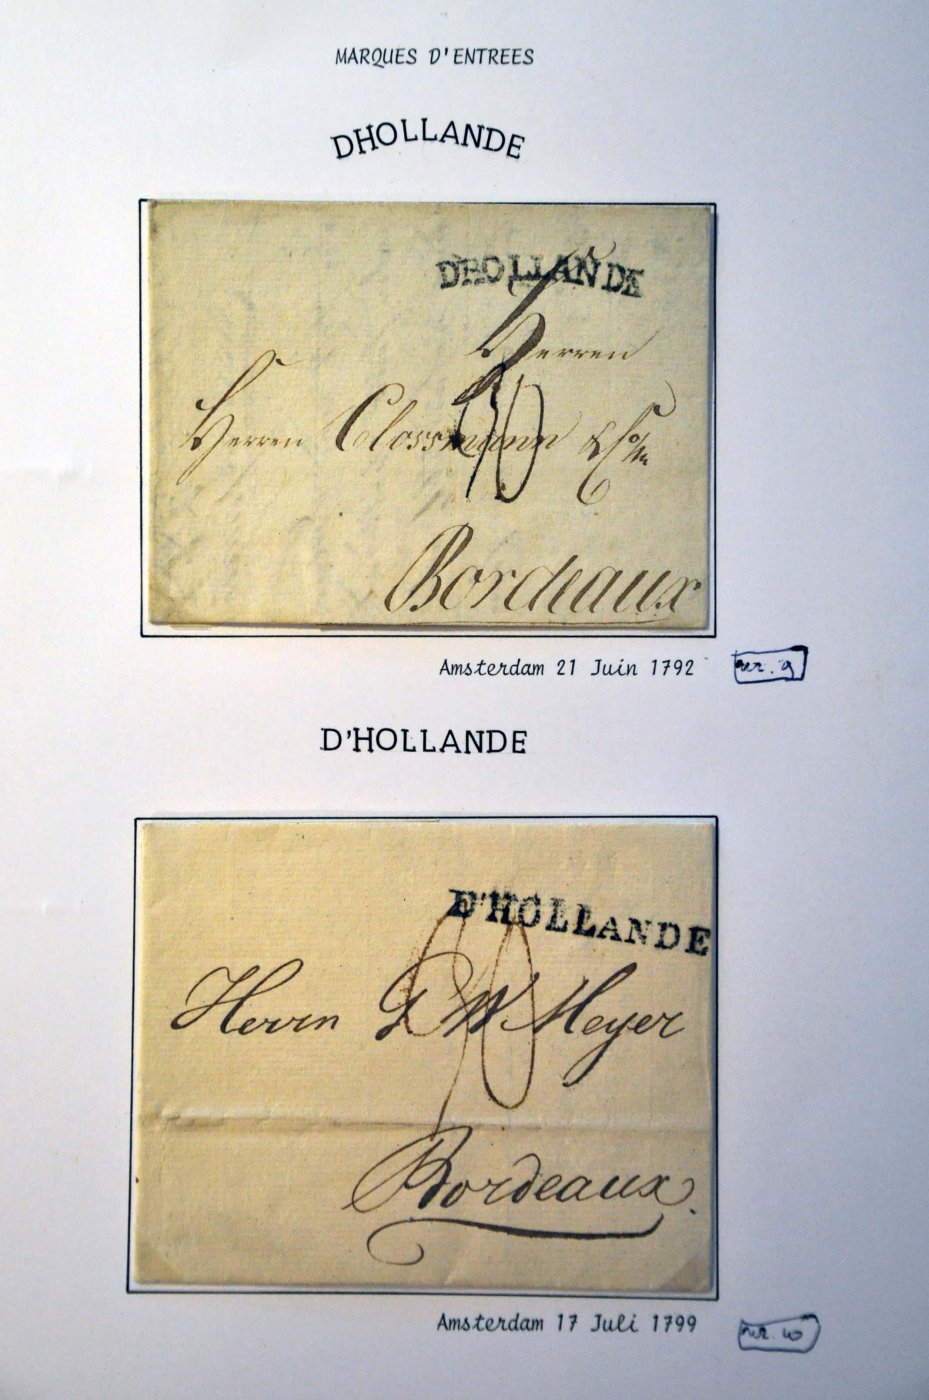 MARQUES D'ENTREES
DHOLLANDE
DHOLLANDE
Herren
Herren Clossmann &
Bordeaux
Amsterdam 21 Juin 1792
nr. 9
D'HOLLANDE
D'HOLLANDE
Herrn
Meyer
Bordeaux.
Amsterdam 17 Juli 1799
nr. 10